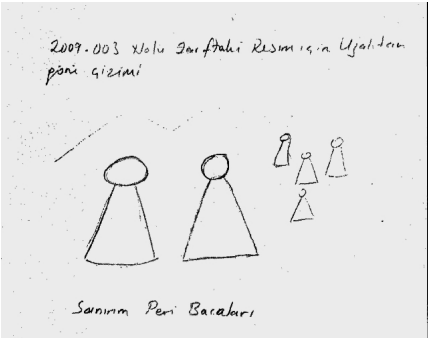 2009.003 Nolu Zarftaki Resim için Uzaktan
görü çizimi
Sanırım Peri Bacaları